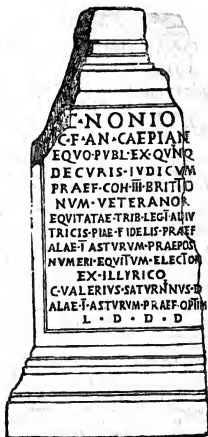 C·NONIO
C·F·AN·CAEPIAN
EQVO·PVBL·EX·QVINQ
DECVRIS·IVDICVM
PRAEF·COH·III·BRITTO
NVM·VETERANOR
EQVITATAE·TRIB·LEG·Ī·ADIV
TRICIS·PIAE·FIDELIS·PRAEF
ALAE·Ī·ASTVRVM·PRAEPOS
NVMERI·EQVITVM·ELECTOR
EX·ILLYRICO
C·VALERIVS·SATVRNINVS·D
ALAE·Ī·ASTVRVM·PRAEF·OPTIM
L·D·D·D